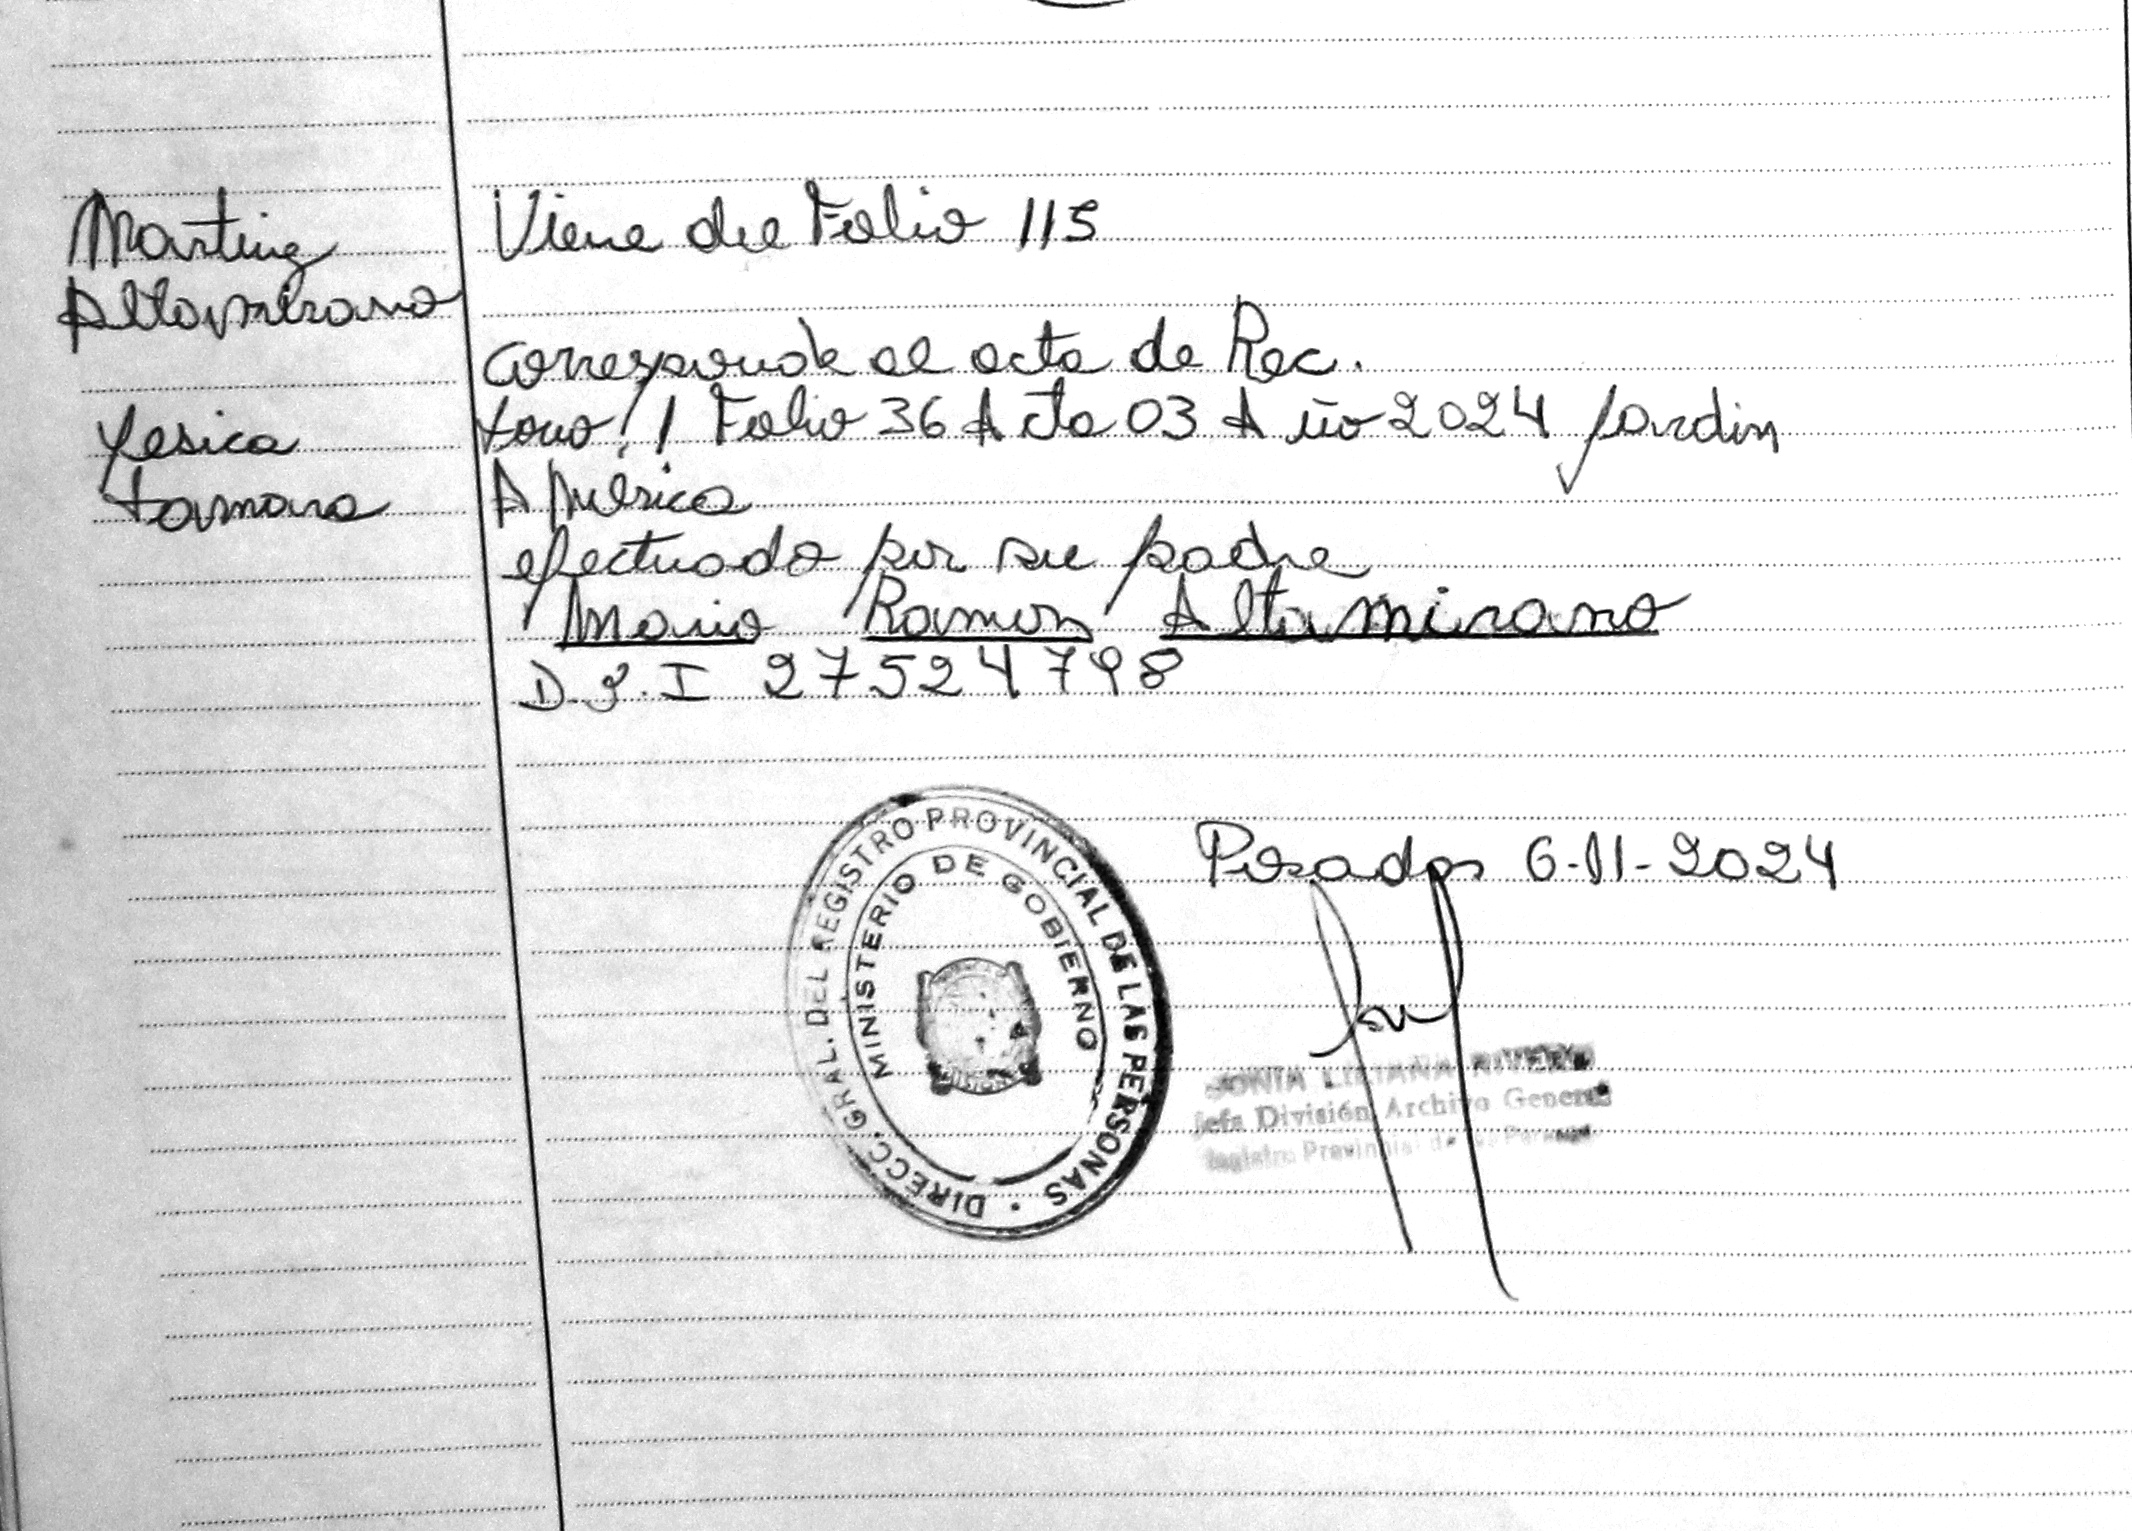 Martinz
Altamirano
Yesica
Tamara
Viene del Folio 115
Corresponde al acta de Rec.
Tomo 1 Folio 36 Acta 03 Año 2024 Jardin
América
efectuado por su padre
Mario Ramon Altamirano
D.N.I 27524798
Posadas 6-11-2024
DIRECC. GRAL. DEL REGISTRO PROVINCIAL DE LAS PERSONAS
MINISTERIO DE GOBIERNO
SONIA LILIANA RIVERO
Jefa División Archivo General
Registro Provincial de las Personas